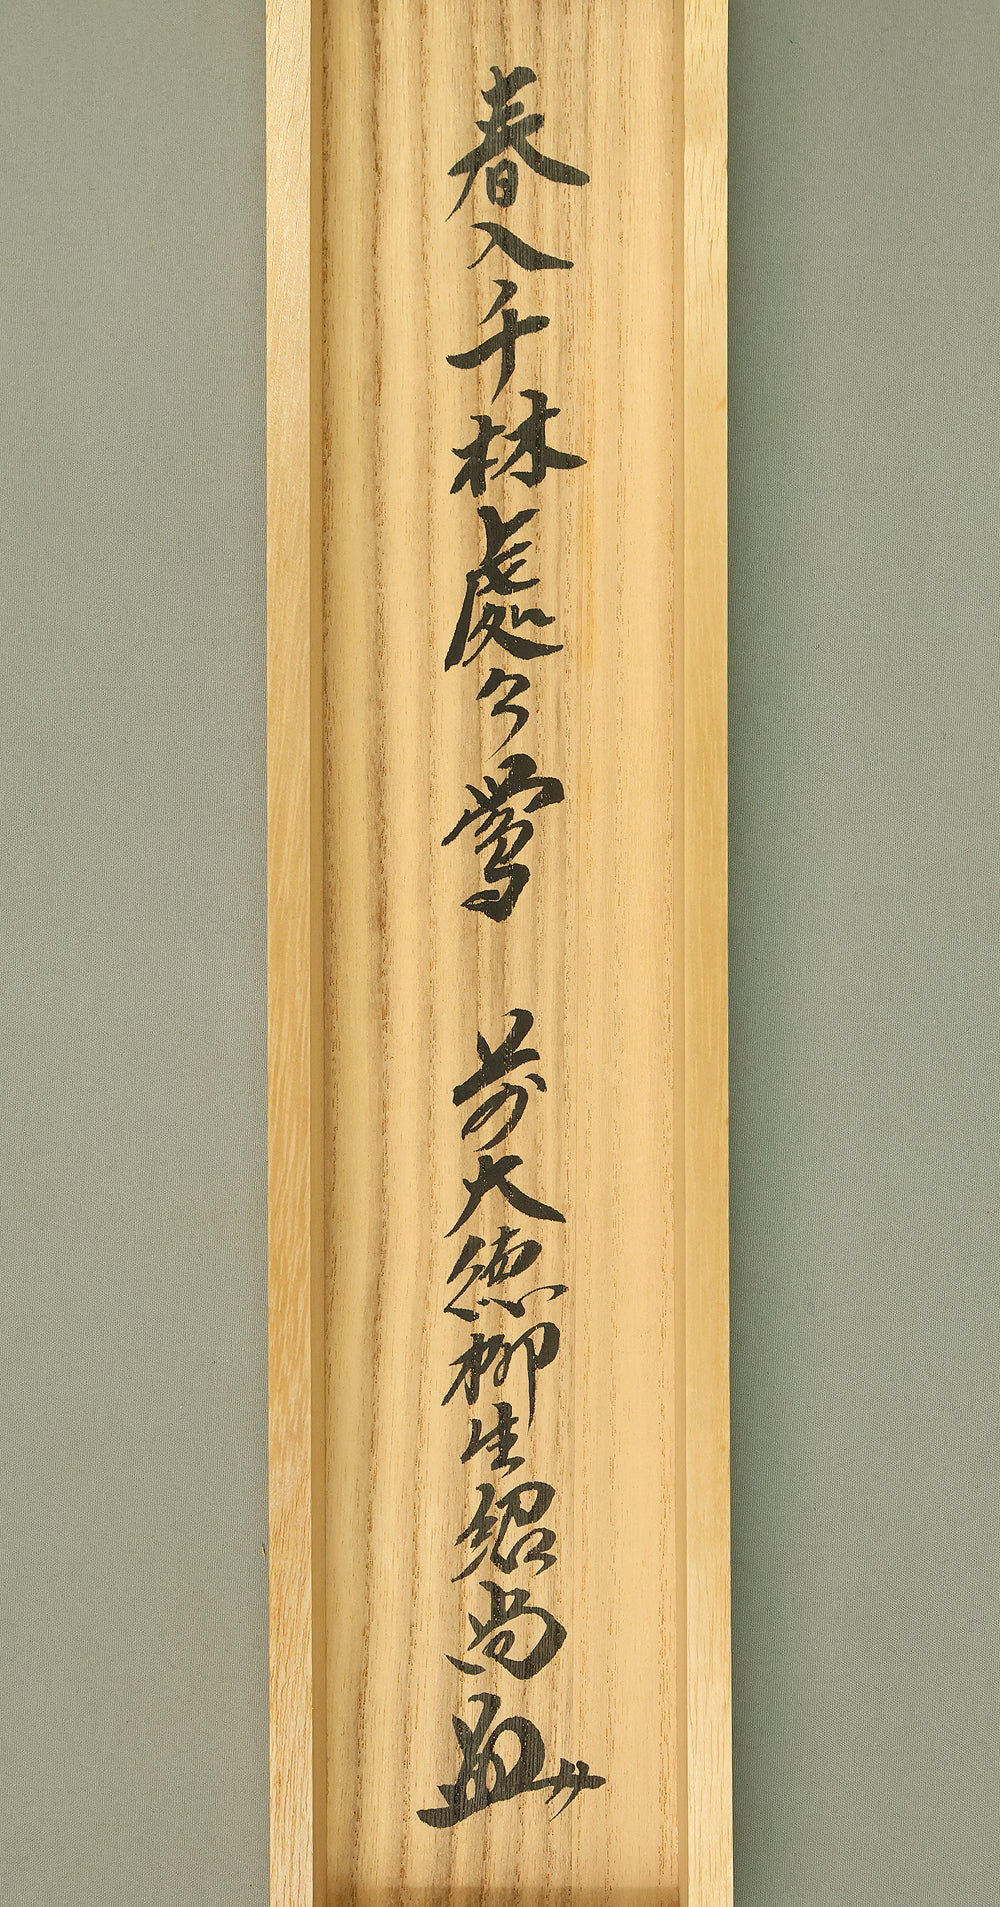 春入千林處々鶯 前大徳柳生紹尚